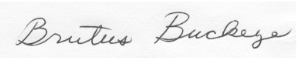 Brutus Buckeye